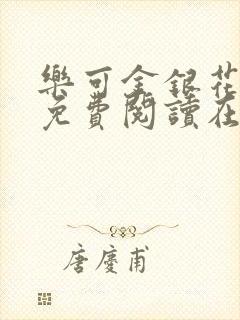 樂可金銀花
免費閱讀在
唐慶甫